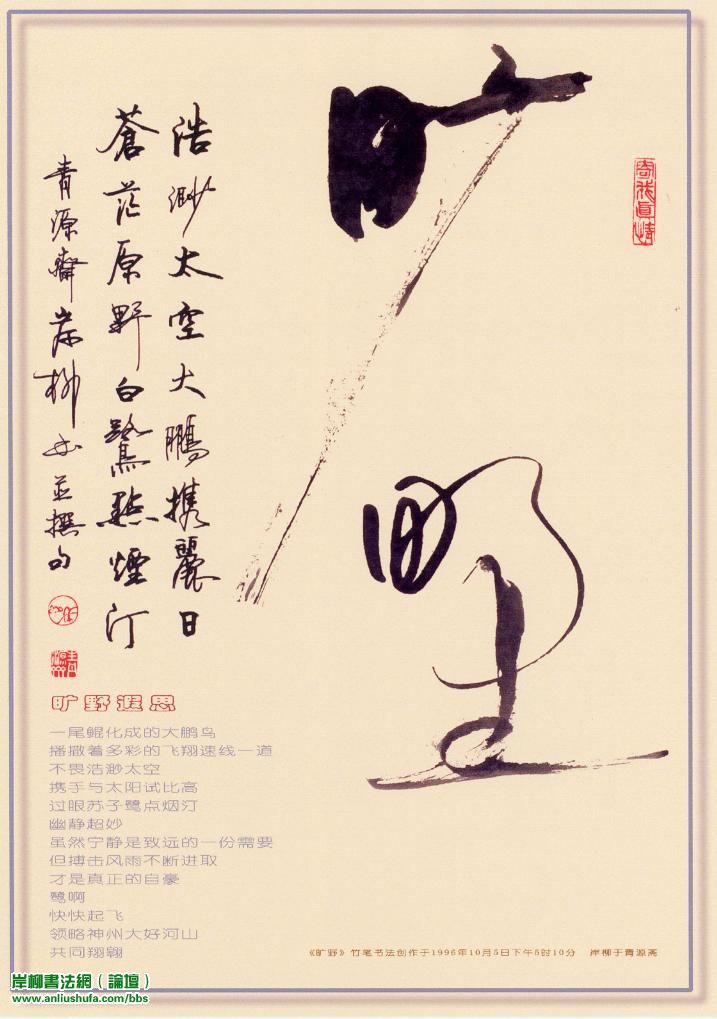 旷野
寄我真情
浩渺太空大鹏携麗日
蒼茫原野白鷺點煙汀
青源齋岸柳書並撰句
旷野遐思
一尾鲲化成的大鹏鸟
播撒着多彩的飞翔速线一道
不畏浩渺太空
携手与太阳试比高
过眼苏子鹭点烟汀
幽静超妙
虽然宁静是致远的一份需要
但搏击风雨不断进取
才是真正的自豪
鹭啊
快快起飞
领略神州大好河山
共同翔翱
《旷野》竹笔书法创作于1996年10月5日下午5时10分 岸柳于青源斋
岸柳書法網（論壇）
www.anliushufa.com/bbs